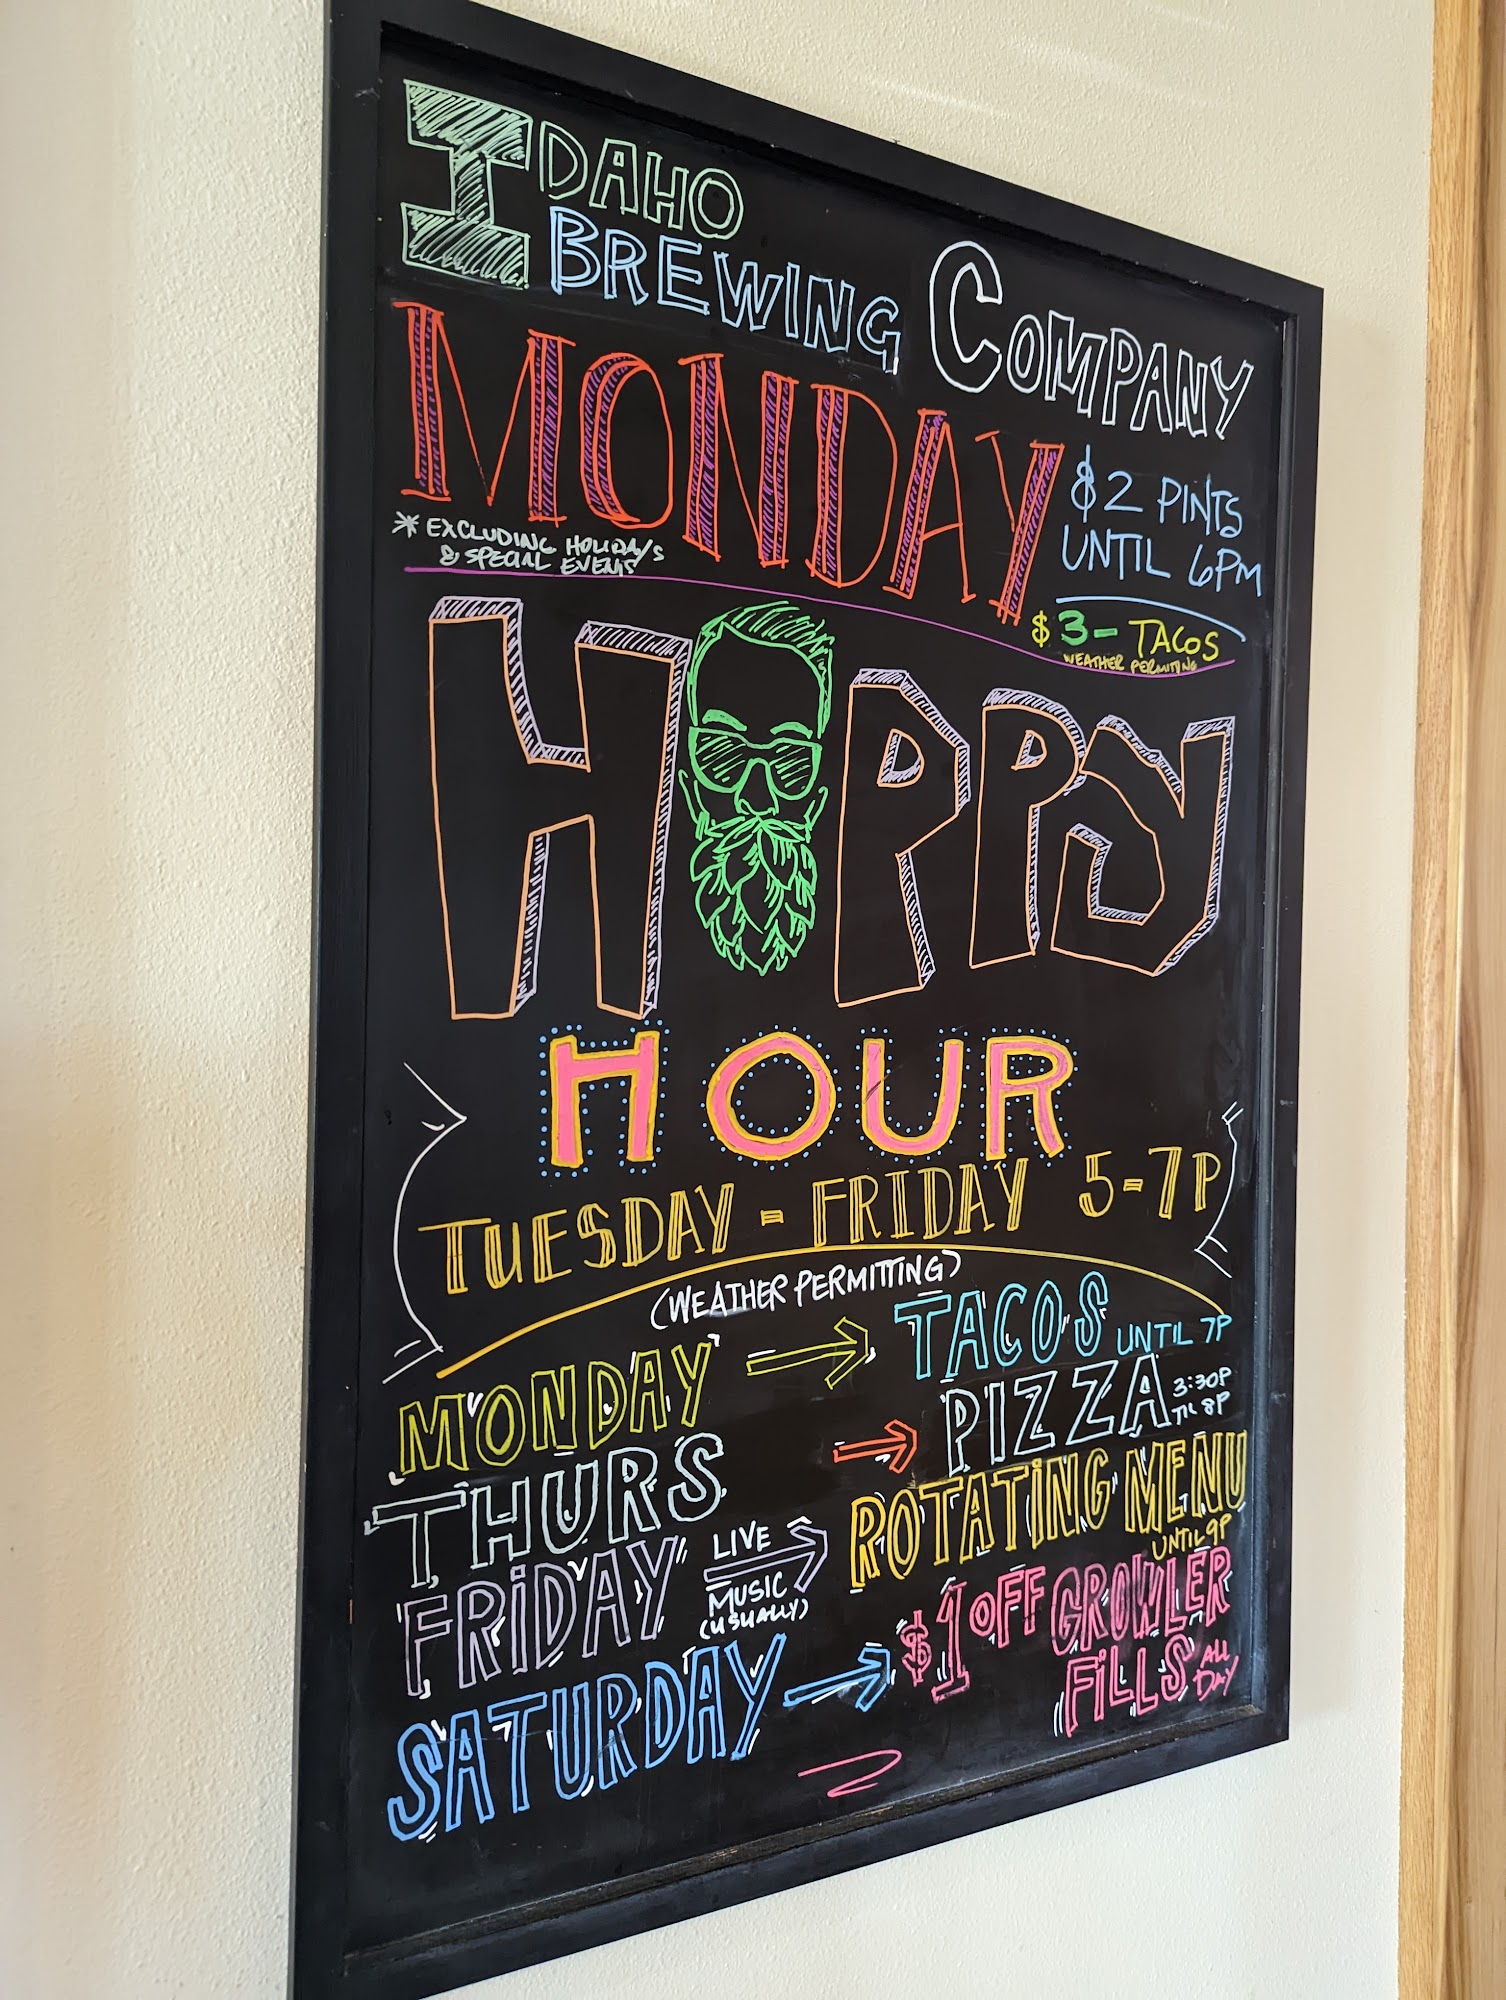 IDAHO
BREWING COMPANY
MONDAY
$2 PINTS
UNTIL 6PM
* EXCLUDING HOLIDAYS
& SPECIAL EVENTS
$3- TACOS
WEATHER PERMITING
HPPY
HOUR
TUESDAY - FRIDAY 5-7P
(WEATHER PERMITTING)
MONDAY → TACOS UNTIL 7P
THURS → PIZZA 3:30P TIL 8P
FRIDAY LIVE MUSIC (USUALLY) → ROTATING MENU UNTIL 9P
SATURDAY → $1 OFF GROWLER FILLS ALL DAY